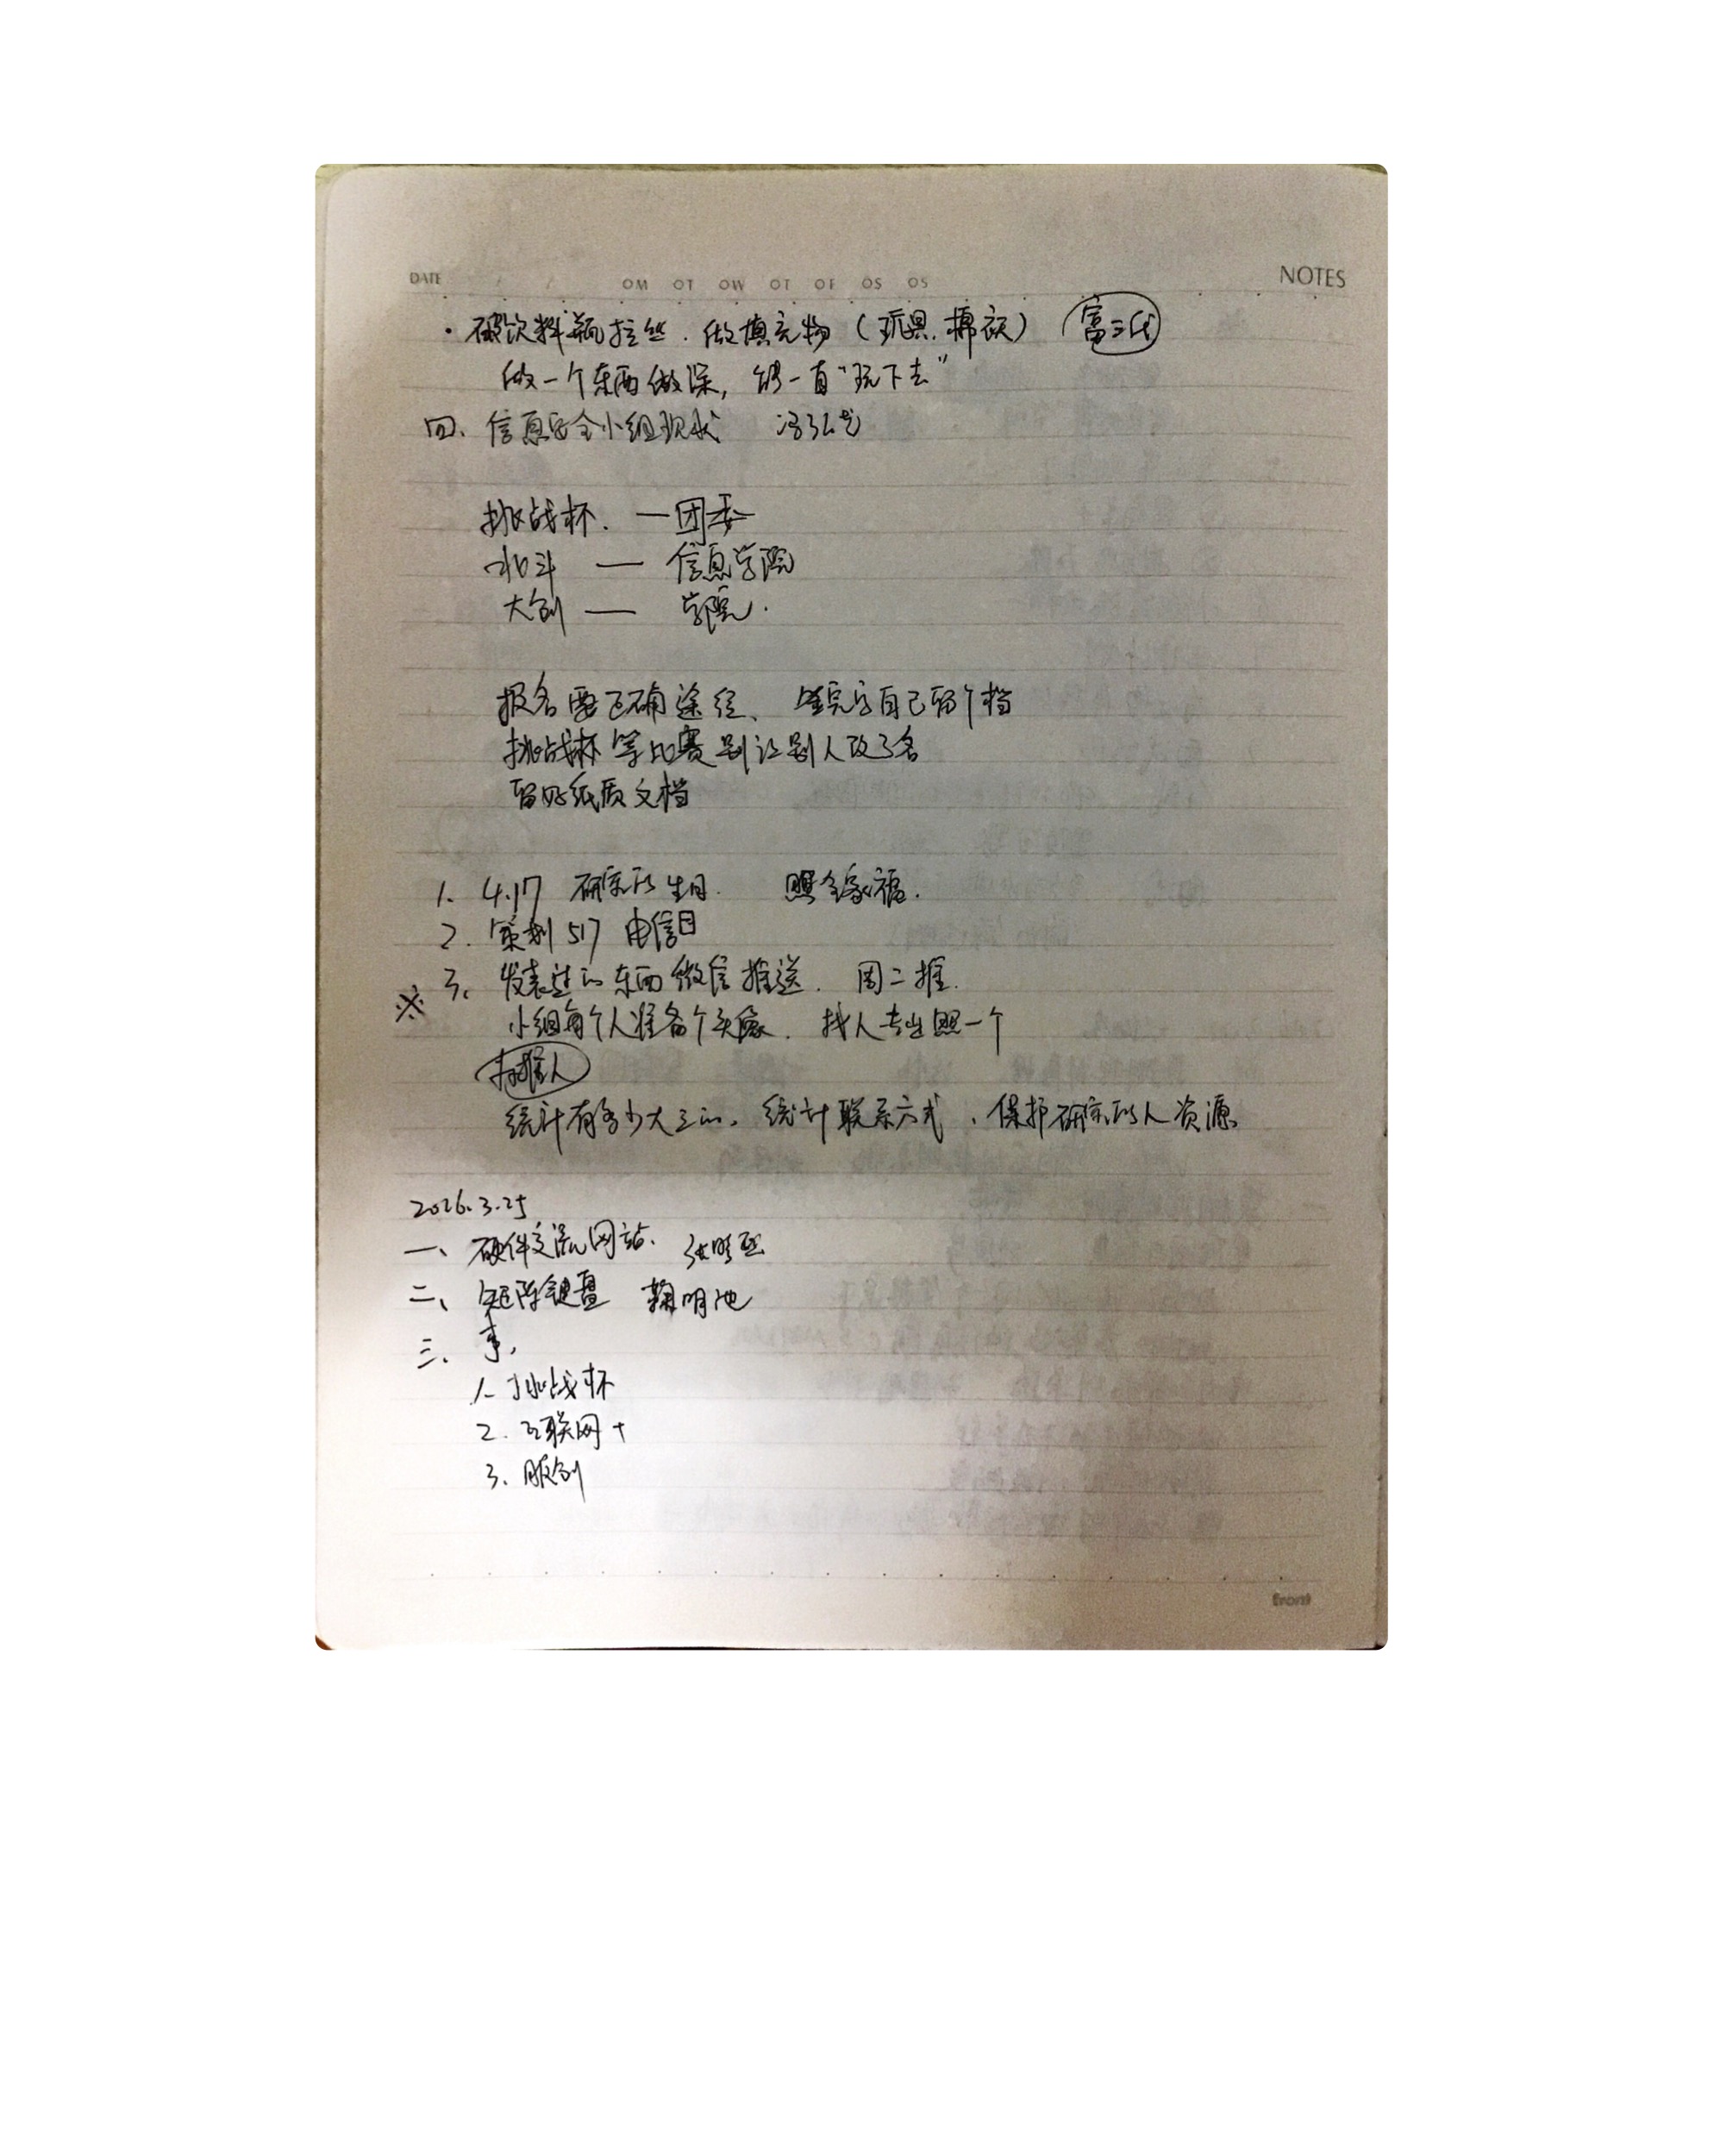 DATE / / OM OT OW OT OF OS OS NOTES
· 破饮料瓶拉丝.做填充物(玩具.棉衣) 富二代
做一个东西做深,能一直"玩下去"
四、信息安全小组现状
挑战杯. — 团委
北斗 — 信息学院
大创 — 学院.
报名要正确途径、签完字自己留个档
挑战杯等比赛别让别人改了名
留好纸质文档
1. 4.17 研究所生日. 照全家福.
2. 策划 517 电信日
※ 3、发表过的东西微信推送. 周二推.
小组每个人准备个头像. 找人专业照一个
统计有多少大三的。统计联系方式、保护研究所人资源
2026.3.25
一、硬件交流网站.
二、矩阵键盘 鞠明池
三、事,
1. 挑战杯
2. 互联网+
3. 服创
front